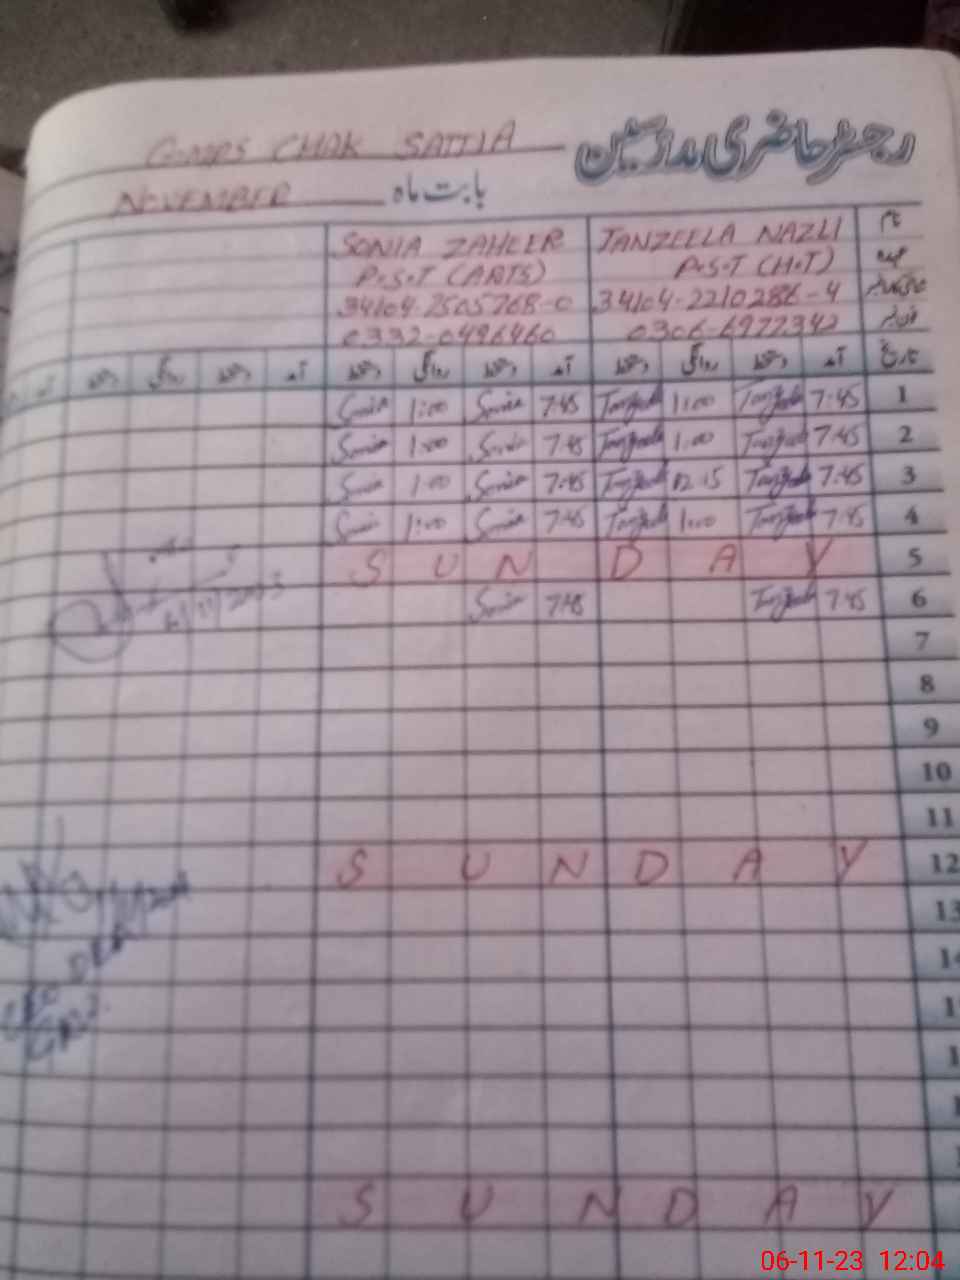 رجسٹر حاضری مدرسین
CHAK SATTIA
بابت ماہ NOVEMBER
نام TANZEELA NAZLI SONIA ZAHEER
عہدہ P.S.T (H.T) P.S.T (ARTS)
34104-2210286-4 34104-7505768-0
فون نمبر 0306-6977342 0332-0496460
تاریخ آمد دستخط روانگی دستخط آمد دستخط روانگی دستخط آمد دستخط روانگی دستخط آمد
1 7:45 Tanzeela 1:00 Tanzeela 7:45 Sonia 1:00 Sonia
2 7:45 Tanzeela 1:00 Tanzeela 7:45 Sonia 1:00 Sonia
3 7:45 Tanzeela 12:15 Tanzeela 7:45 Sonia 1:00 Sonia
4 7:45 Tanzeela 1:00 Tanzeela 7:45 Sonia 1:00 Sonia
5 S U N D A Y
6 7:45 Tanzeela 7:45 Sonia
6/11/2023
7
8
9
10
11
12 S U N D A Y
13
S U N D A Y
06-11-23 12:04